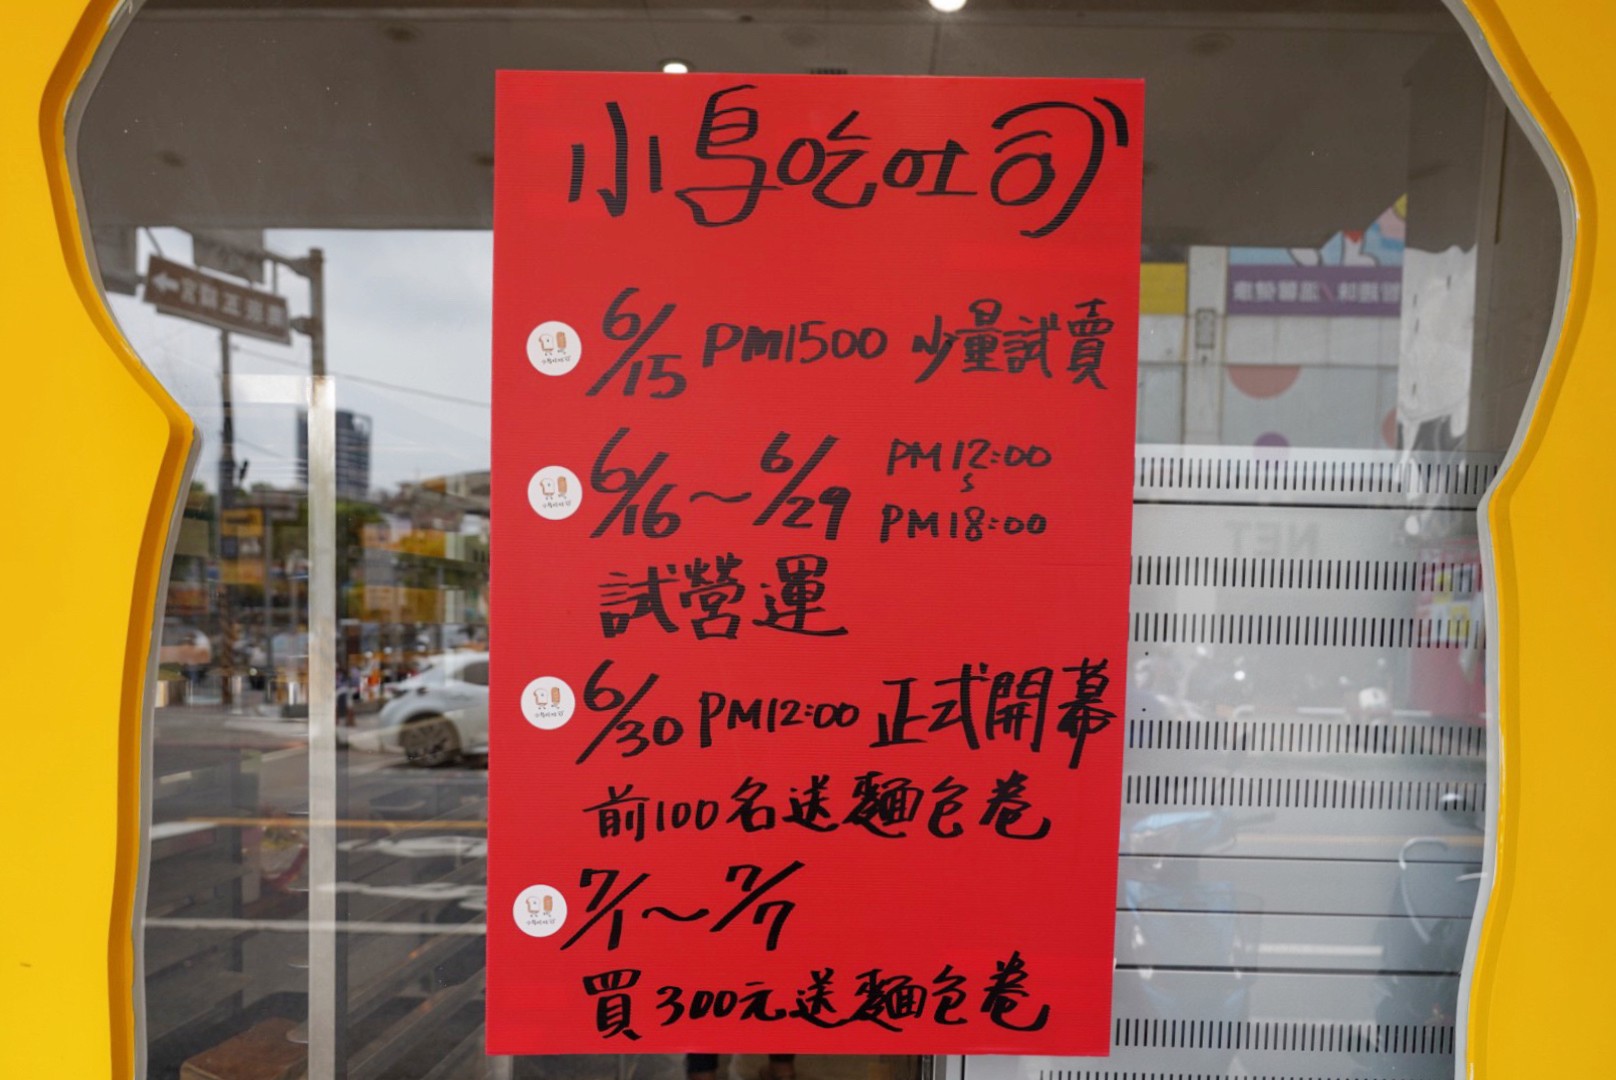 小鳥吃吐司
6/15 PM1500 少量試賣
6/16～6/29 PM12:00
～
PM18:00
試營運
6/30 PM12:00 正式開幕
前100名送麵包卷
7/1～7/7
買300元送麵包卷
NET